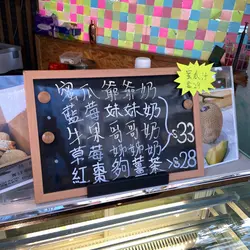 蜜瓜爺爺奶
藍莓妹妹奶
牛果哥哥奶
草莓姊姊奶
紅棗枸薑茶
$33
$28